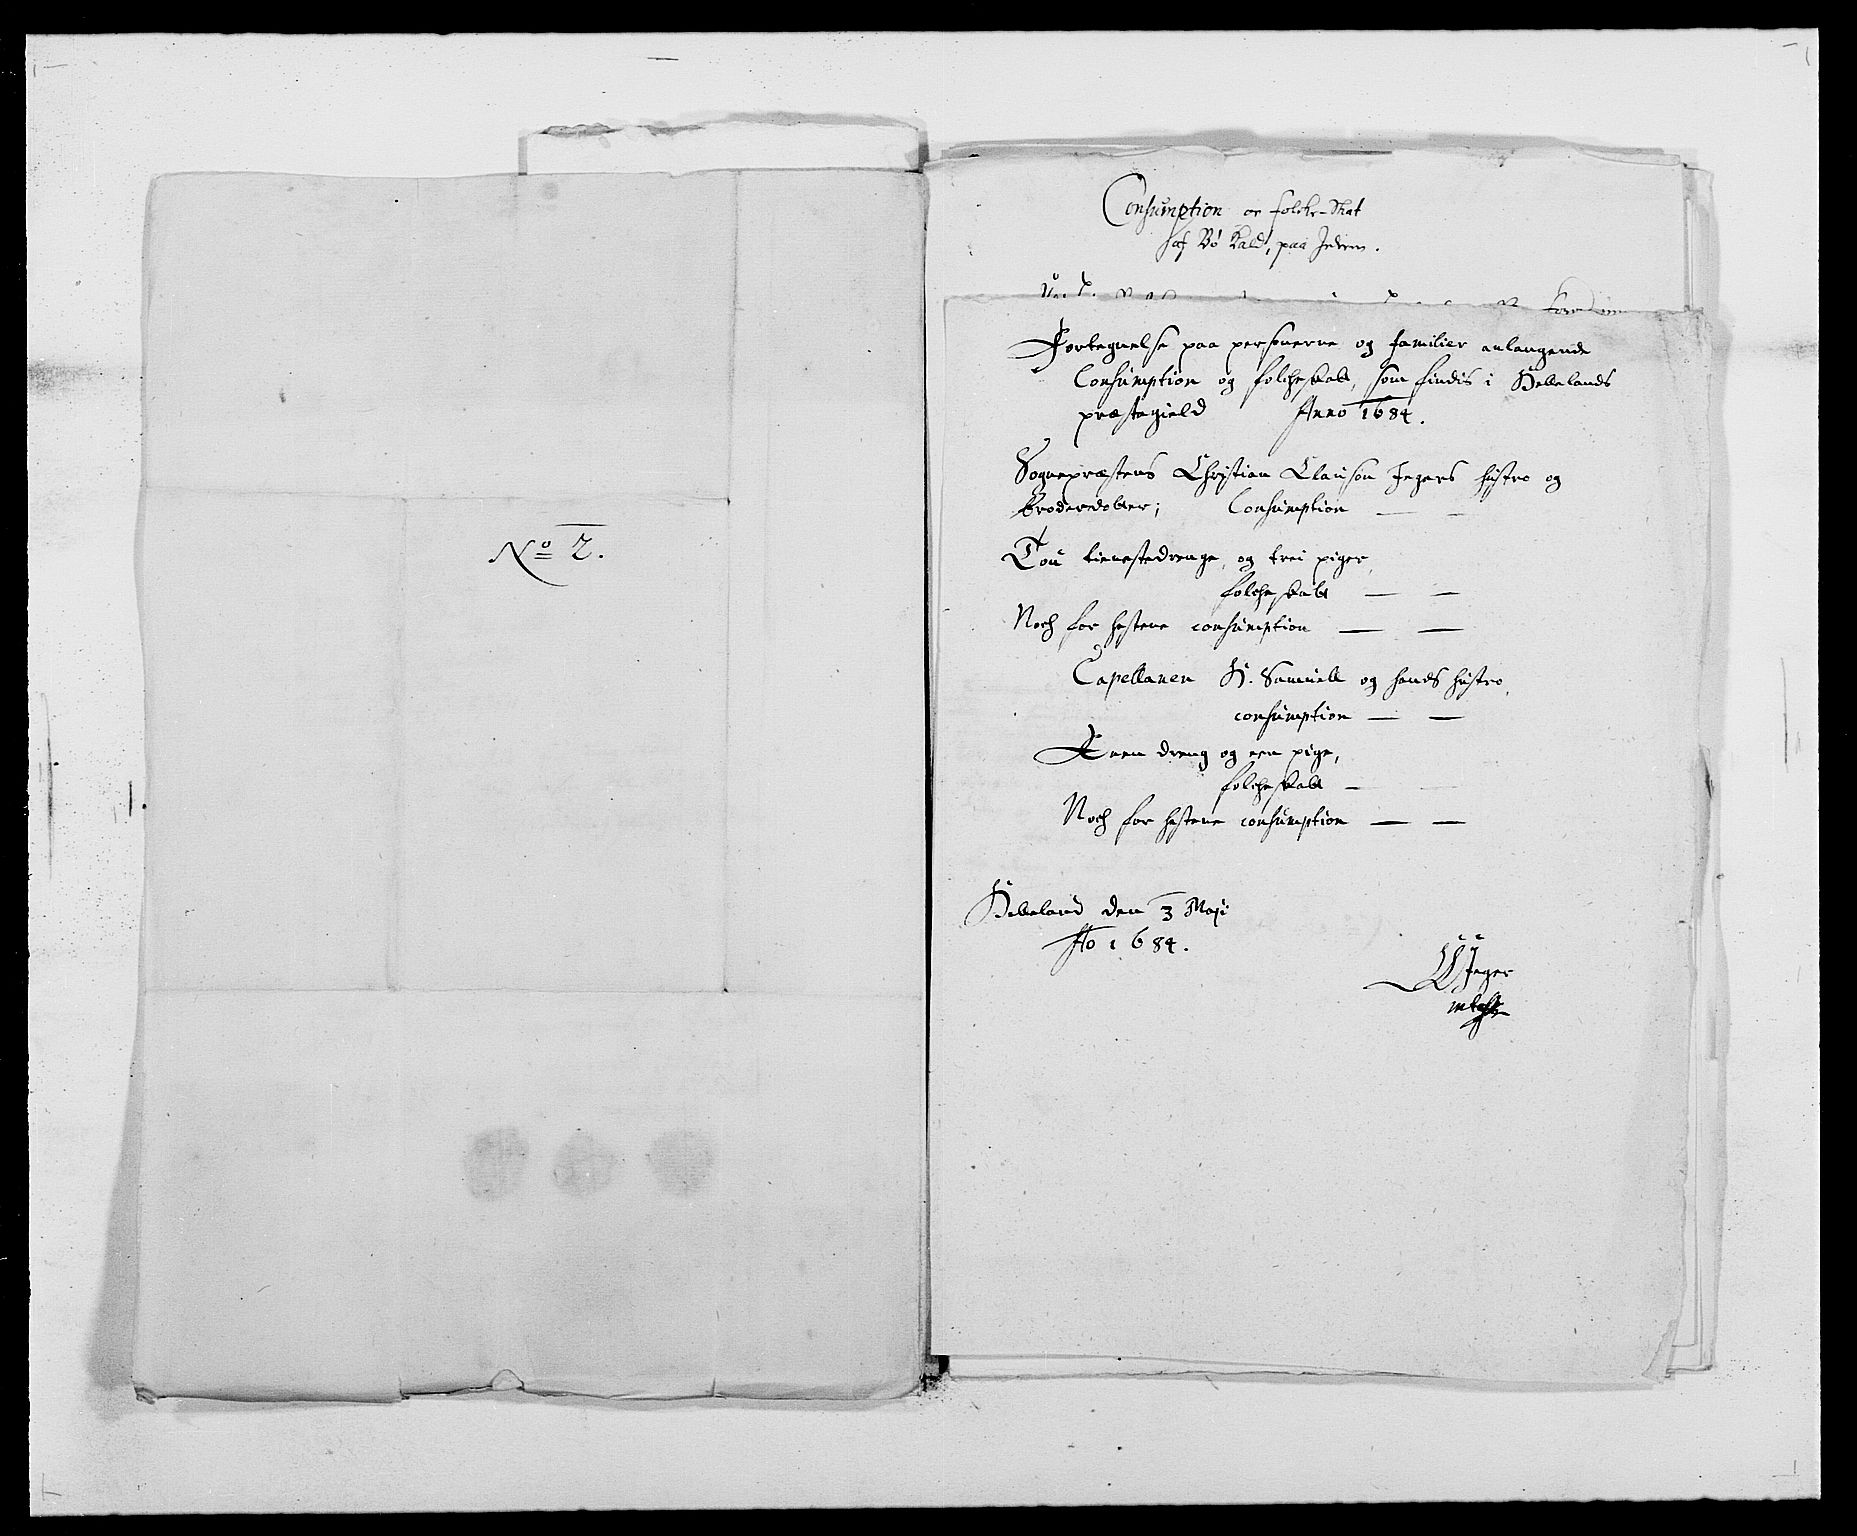 No 2.
Consumption oc folche-Skat
af Bö Kald, paa Jedren.
Fortegnelse paa personerne og familier anlangende
Consumption og folcheskatt, som findis i Hetlands
præstegield Anno 1684.
Sognepræstens Christian Clauson Jegers hustro og
broderdotter; Consumption — —
Tou tienestedrenge, og trei piger,
folcheskatt — —
Noch for hestene consumption — —
Capellanen H. Samuell og hands hustro,
consumption — —
Enen dreng og een pige,
folcheskatt —
Noch for hestene consumption — —
Hetland den 3 Maji
Ao 1684.
CCJeger